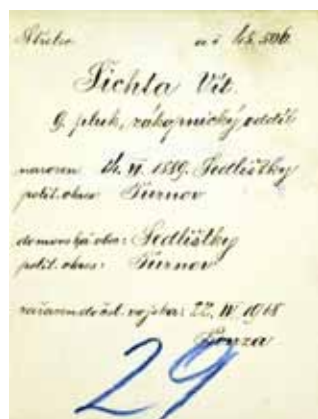 Střelec ad č 45.506.
Fichta Vít.
9. pluk, zákopnický oddíl
narozen 14. VI. 1889. Sedlištky
polit. okres Turnov
domovská obec: Sedlištky
polit. okres: Turnov
zařazen do čsl. vojska: 22. IV 1918
Penza
29